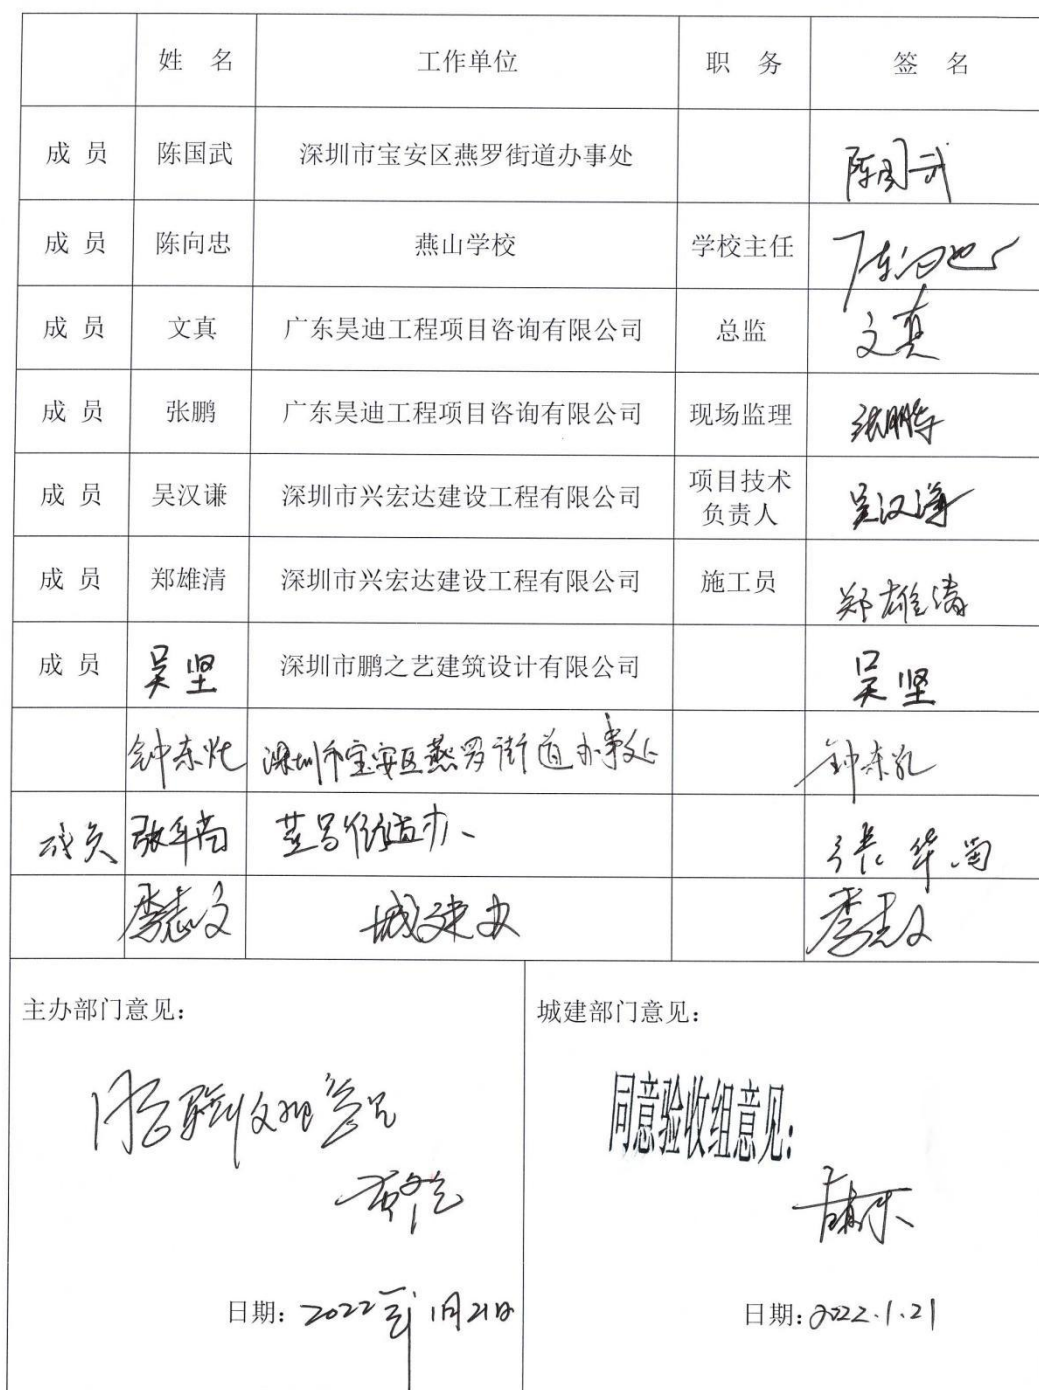 姓 名 工作单位 职 务 签 名
成 员 陈国武 深圳市宝安区燕罗街道办事处 陈国武
成 员 陈向忠 燕山学校 学校主任 陈向忠
成 员 文真 广东昊迪工程项目咨询有限公司 总监 文真
成 员 张鹏 广东昊迪工程项目咨询有限公司 现场监理 张鹏
成 员 吴汉谦 深圳市兴宏达建设工程有限公司 项目技术
负责人 吴汉谦
成 员 郑雄清 深圳市兴宏达建设工程有限公司 施工员 郑雄清
成 员 吴坚 深圳市鹏之艺建筑设计有限公司 吴坚
钟东 深圳市宝安区燕罗街道办事处 钟东
成员 张华 燕罗街道办 张华
李志文 城建办 李志文
主办部门意见： 城建部门意见：
同意验收组意见 同意验收组意见：
日期：2022年1月21日 日期：2022.1.21